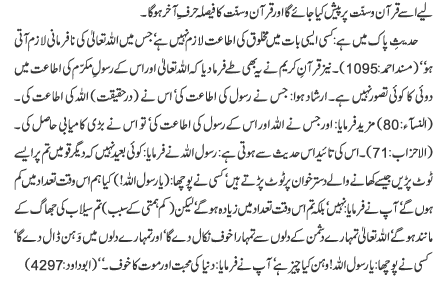 لیے اسے قرآن وسنّت پر پیش کیا جائے گا اور قرآن وسنّت کا فیصلہ حرفِ آخر ہوگا۔
حدیثِ پاک میں ہے: کسی ایسی بات میں مخلوق کی اطاعت لازم نہیں ہے‘ جس میں اللہ تعالیٰ کی نافرمانی لازم آتی
ہو‘‘ (مسند احمد: 1095)۔ نیز قرآنِ کریم نے یہ بھی طے فرما دیا کہ اللہ تعالیٰ اور اس کے رسولِ مکرّم کی اطاعت میں
دوئی کا کوئی تصور نہیں ہے۔ ارشاد ہوا: جس نے رسول کی اطاعت کی‘ اس نے (درحقیقت) اللہ کی اطاعت کی۔
(النسآء: 80) مزید فرمایا: اور جس نے اللہ اور اس کے رسول کی اطاعت کی‘ تو اس نے بڑی کامیابی حاصل کی۔
(الاحزاب: 71)۔ اس کی تائید اس حدیث سے ہوتی ہے: رسول اللہ نے فرمایا: کوئی بعید نہیں کہ دیگر قومیں تم پر ایسے
ٹوٹ پڑیں جیسے کھانے والے دستر خوان پر ٹوٹ پڑتے ہیں‘ کسی نے پوچھا: (یارسول اللہ!) کیا ہم اس وقت تعداد میں کم
ہوں گے‘ آپ نے فرمایا: نہیں‘ بلکہ تم اس وقت تعداد میں زیادہ ہو گے‘ لیکن (کم ہمتی کے سبب) تم سیلاب کی جھاگ کے
مانند ہو گے‘ اللہ تعالیٰ تمہارے دشمن کے دلوں سے تمہارا خوف نکال دے گا‘ اور تمہارے دلوں میں وَہن ڈال دے گا‘
کسی نے پوچھا: یارسول اللہ! وہن کیا چیز ہے‘ آپ نے فرمایا: دنیا کی محبت اور موت کا خوف۔‘‘ (ابوداود: 4297)